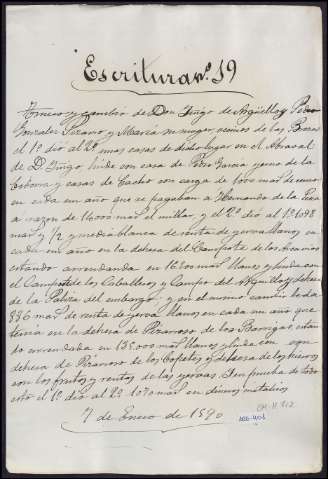 Escritura nº 19
Trueco y cambio de Don Iñigo de Argüello y Pedro
Gonzalez Serano y Maria su muger, vecinos de las Brozas
el 1º dió al 2º unas casas de dicho lugar en el Arraval
de D. Iñigo, linde con casa de Pero Garcia yerno de la
y casas de con carga de 1000 mar. de censo
en cada un año que se pagaban á Hernando de la Peña
a razon de 14000 mar. el millar, y el 2º dió al 1º 1098
mar. y 1/2 y media blanca de renta de yerva llanos en
cada un año en la dehesa del Campofrte de los
estando arrendada en 16500 mar. llanos y linda con
el Campofrte de los Caballeros y Campo del y dehesa
de la Pulva del embargo; y en el mismo cambio le da
836 mar. de renta de yerva llanos en cada un año que
tenia en la dehesa de Pizarroso de los Barrigas, están-
do arrendada en 135000 mar. llanos y linda con
dehesa de Pizarroso de los Copetes y dehesa de los
con los frutos y rentas de las yervas. Con prueba de todo
esto el 1º dió al 2º 1070 mar. en dineros metálicos
7 de Enero de 1590